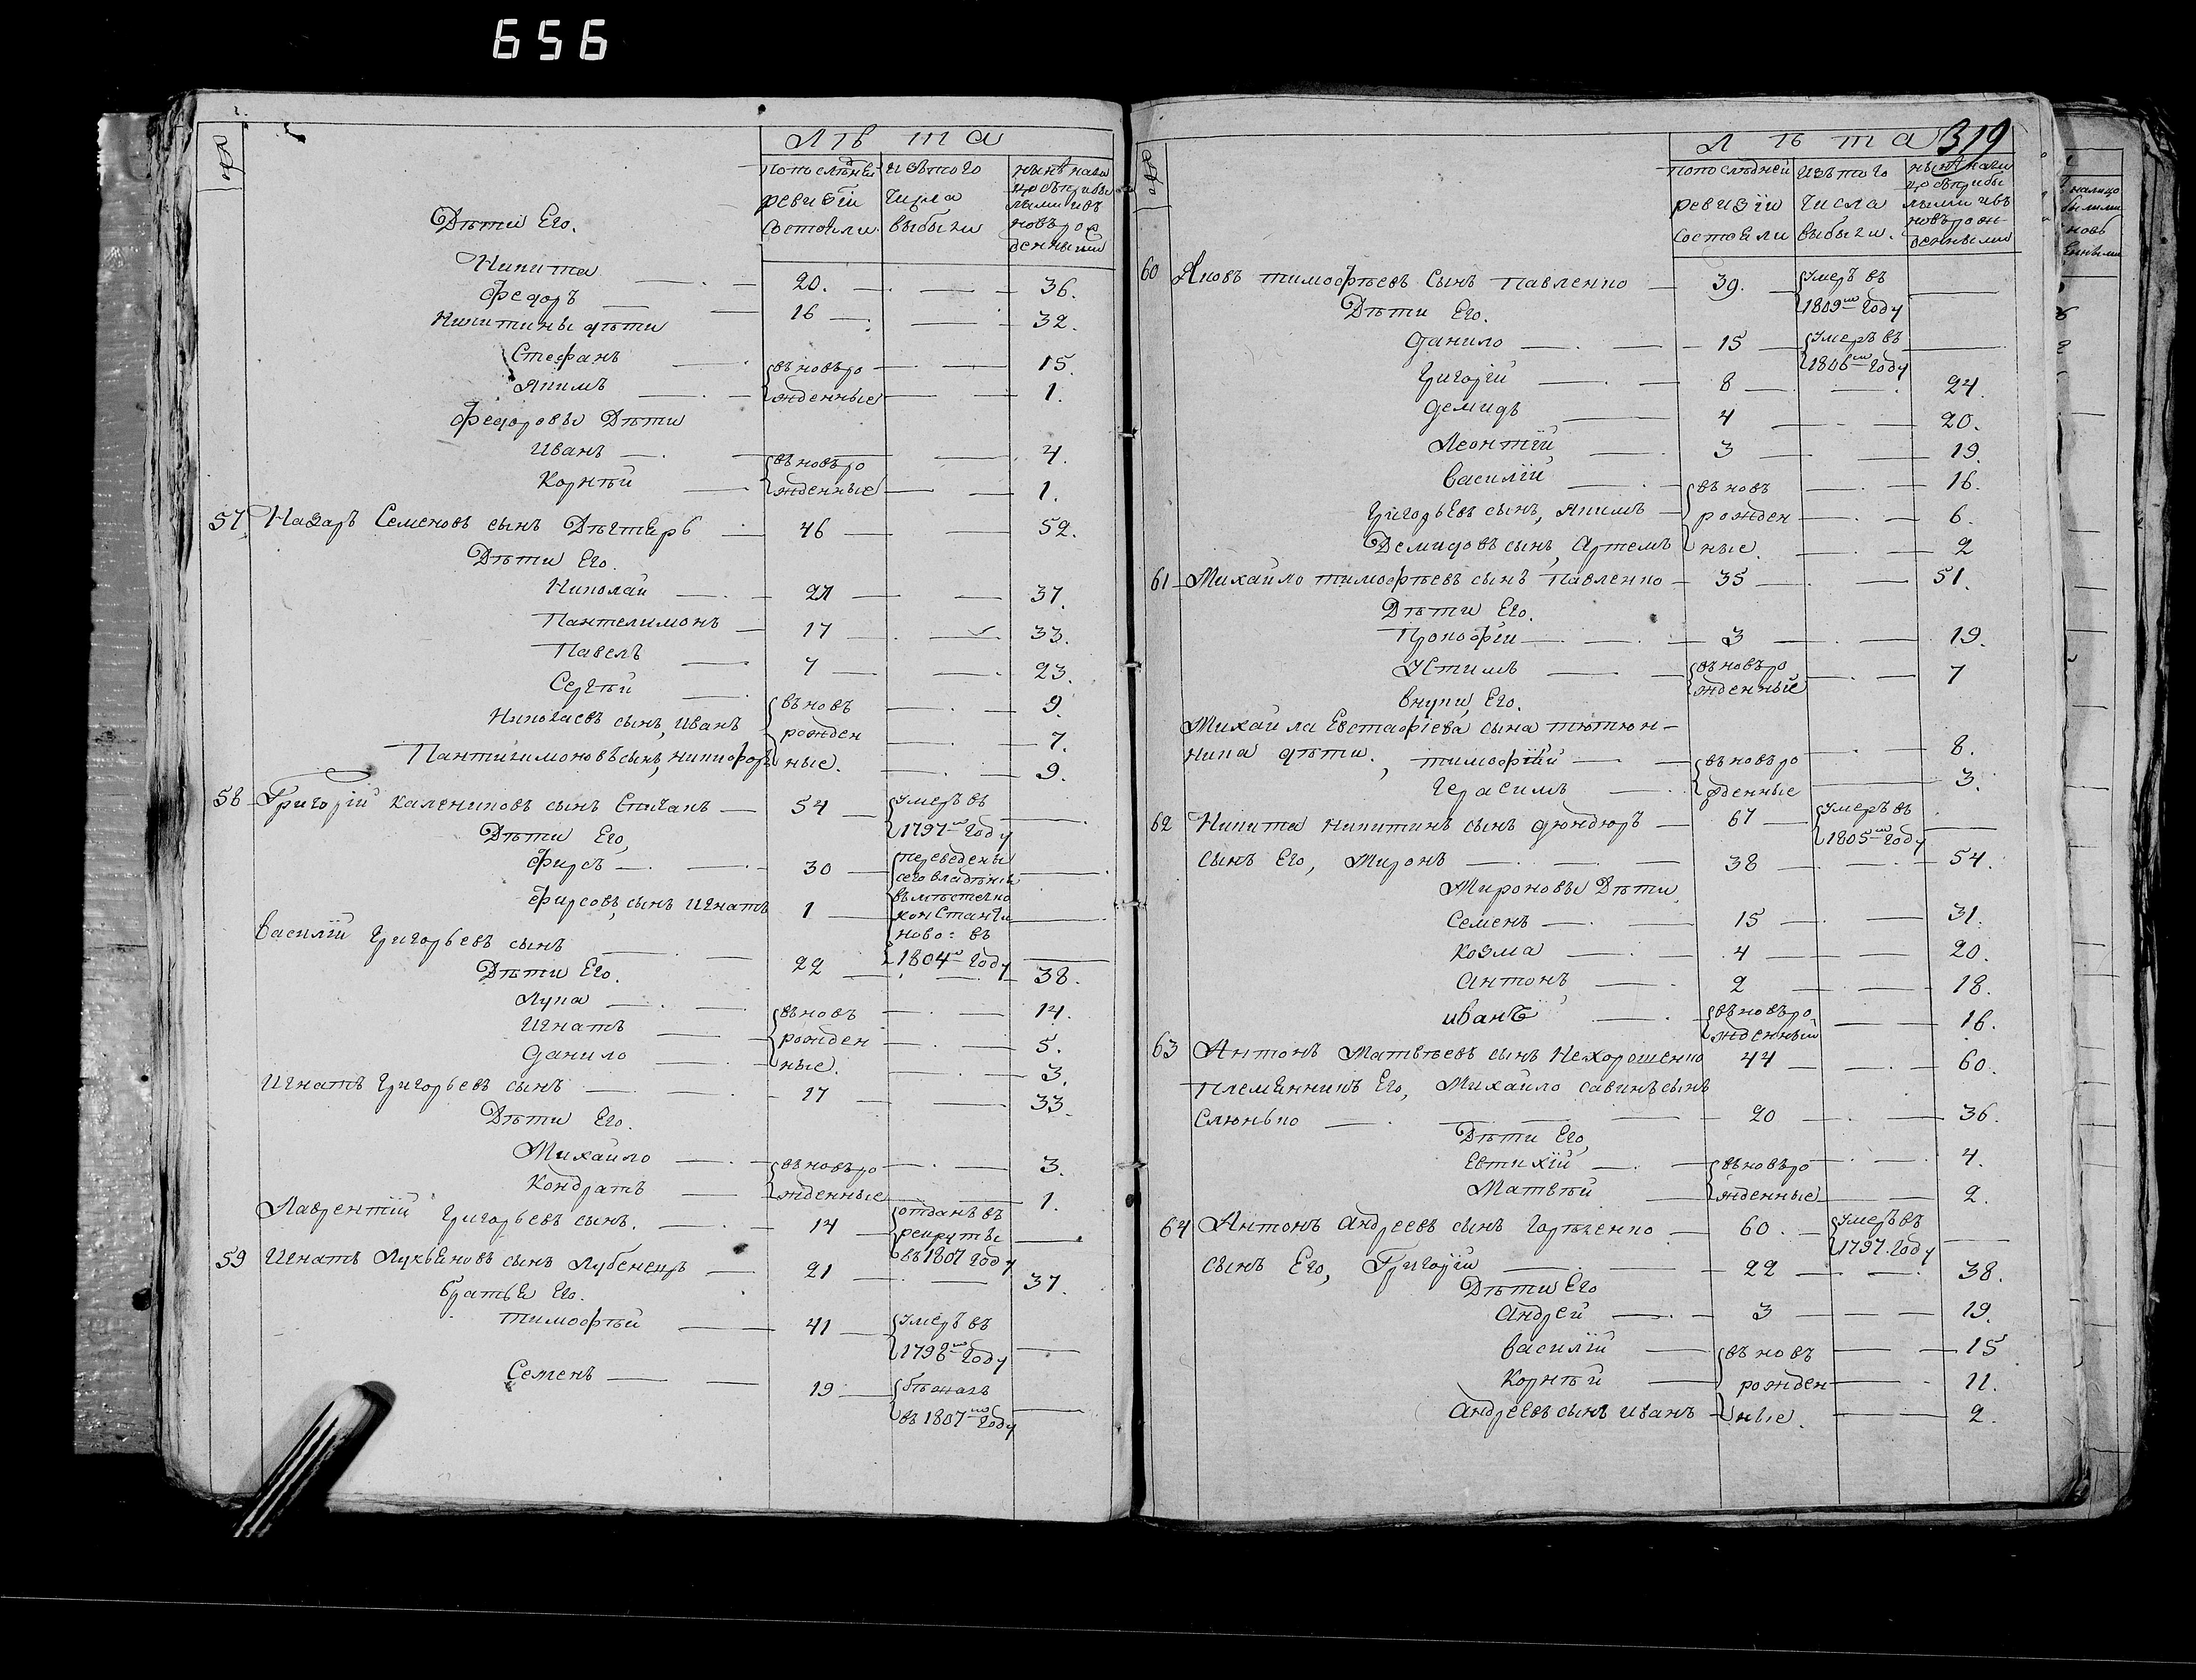 656
Лѣта
по последней ревизiи состояли
изъ того числа выбыли
нынѣ на лицо съ прибылыми и въ новъ рожденными
Дѣти Его.
Никита 20. 36.
Федоръ 16 32.
Никитины дѣти
Стефанъ въ новъ ро 15.
Якимъ жденные 1.
Федоровы Дѣти
Иванъ въ новъ ро 4.
Корнѣй жденные 1.
57 Назаръ Семеновъ сынъ 46 52.
Дѣти Его.
Николай 21 37.
Пантелимонъ 17 33.
Павелъ 7 23.
Сергѣй въ новъ 9.
Николаевъ сынъ, Иванъ рожден 7.
Пантилимоновъ сынъ, Никифоръ ные. 9.
58 Григорiй Калениковъ сынъ Спичакъ 54 умеръ въ 1797мъ году
Дѣти Его,
Фирсъ 30 переведены
Фирсовъ, сынъ Игнатъ 1 въ мѣстечко Константиново въ 1804м году
Василiй Григорьевъ сынъ 22 38.
Дѣти Его.
Лука въ новъ 14.
Игнатъ рожден 5.
Данило ные. 3.
Игнатъ Григорьевъ сынъ 17 33.
Дѣти Его.
Михайло въ новъ ро 3.
Кондратъ жденные 1.
Лаврентiй Григорьевъ сынъ. 14 отданъ въ рекруты въ 1807 году
59 Игнатъ Лукьяновъ сынъ Лубенецъ 21 37.
братья Его.
Тимофѣй 41 умеръ въ 1798м году
Семенъ 19 бѣжалъ въ 1807мъ году
319
Лѣта
по последней ревизiи состояли
изъ того числа выбыли.
нынѣ на лицо съ прибылыми и въ новъ рожденными
60 Яковъ Тимофѣевъ Сынъ Павленко 39. умеръ въ 1809м году
Дѣти Его.
Данило 15 умеръ въ 1806м году
Григорiй 8 24.
Демидъ 4 20.
Леонтiй 3 19.
Василiй въ новъ 16.
Григорьевъ сынъ, Якимъ рожден 6.
Демидовъ сынъ, Артемъ ные. 2
61 Михайло Тимофѣевъ сынъ Павленко 35 51.
Дѣти Его.
Прокофiй 3 19.
Устимъ въ новъ ро жденные 7
внуки, Его.
Михайла Евстафiева сына Тютюн-
ника дѣти, Тимофiй въ новъ ро 8.
Герасимъ жденные 3.
62 Никита Никитинъ сынъ Дюндюръ 67 умеръ въ 1805м году
сынъ Его, Миронъ 38 54.
Мироновы Дѣти,
Семенъ 15 31.
Козма 4 20.
Антонъ 2 18.
Иванъ въ новъ ро жденный 16.
63 Антонъ Матвѣевъ сынъ Нехорошенко 44 60.
Племянникъ Его, Михайло Савинъ сынъ
Слюнько 20 36.
Дѣти Его,
Евтихiй въ новъ ро 4.
Матвѣй жденные 2.
64 Антонъ Андреевъ сынъ 60. умеръ въ 1797. году
сынъ Его, Григорiй 22 38.
Дѣти Его
Андрей 3 19.
Василiй въ новъ 15
Корнѣй рожден 11.
Андреевъ сынъ Иванъ ные. 2.